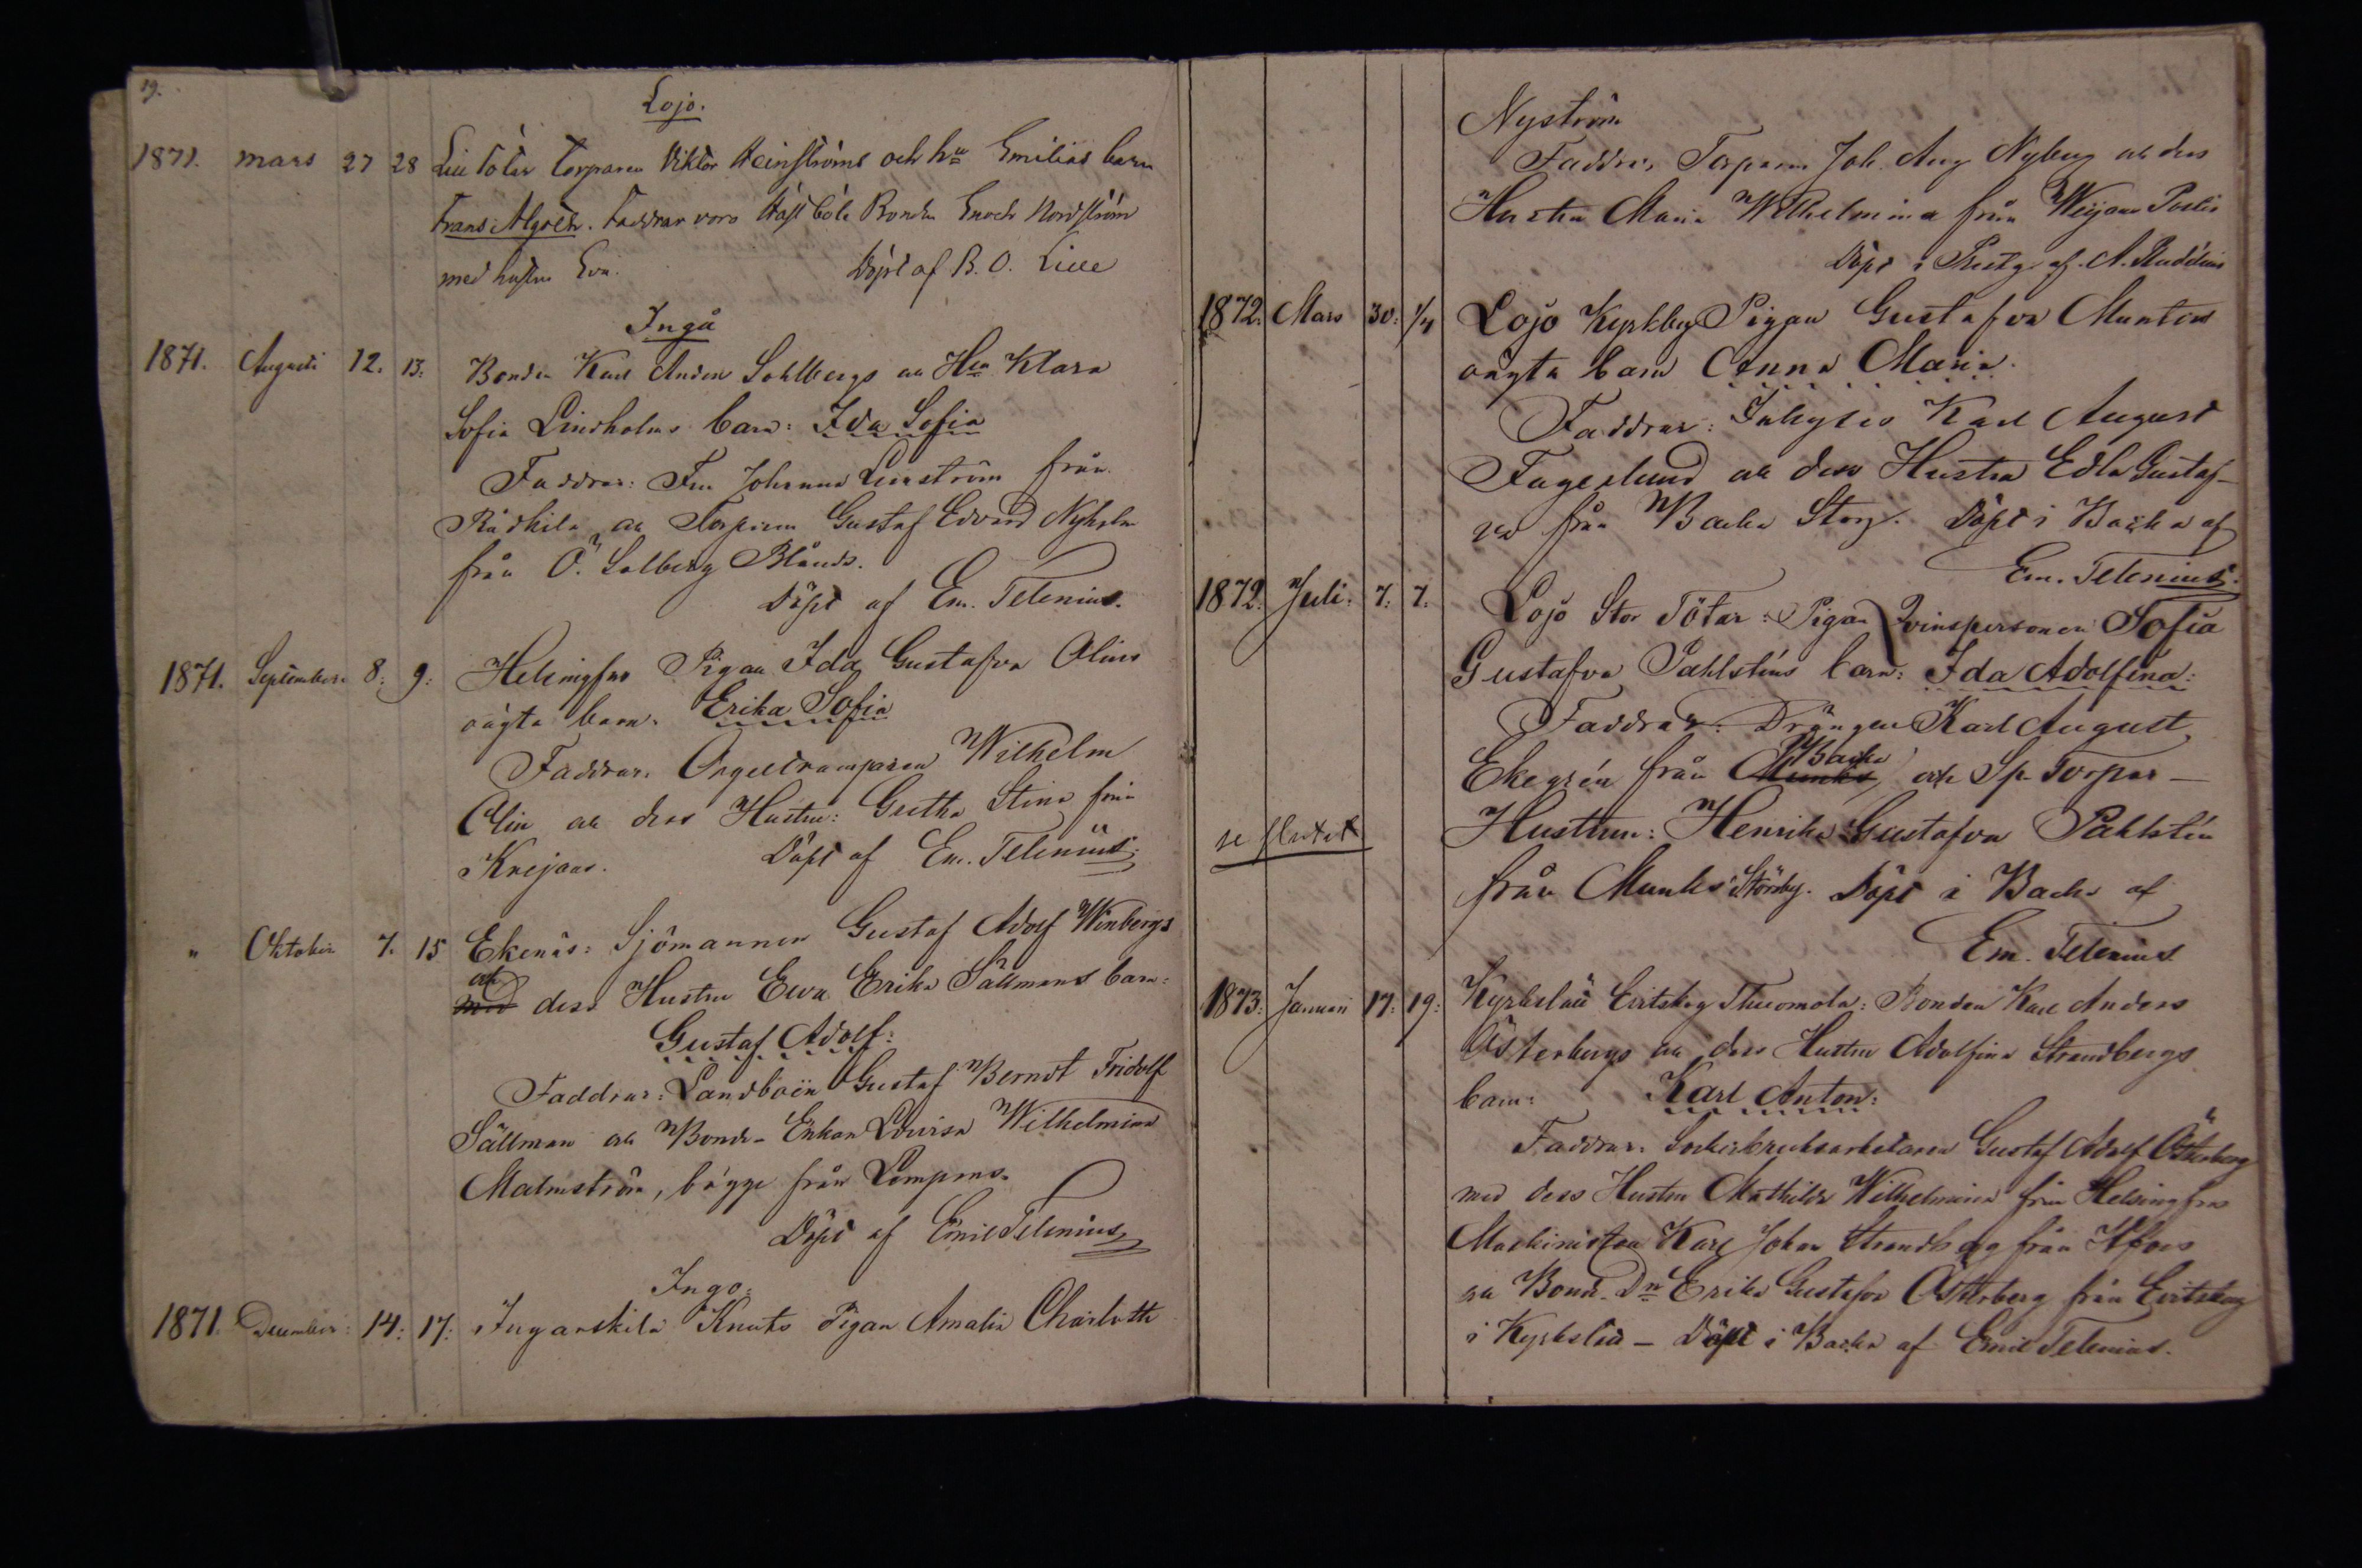 19.
Lojo.
1871. mars 27 28 Lill Tötar Torparen Viktor Heinströms och hu Emilias barn
Frans Algoth. Faddrar voro Hästböle Bonden Enoch Nordström
med hustru Eva. Döpt af B. O. Lille
Ingå
1871. Augusti 12. 13: Bonden Karl Anders Sohlbergs och Hu Klara
Sofia Lindholms barn: Ida Sofia
Faddrar: Fru Johanna Lindström från
Rådkila och Torparen Gustaf Edvard Nyholm
från Ö. Solberg Blands.
Döpt af Em. Telenius.
1871. September 8: 9: Helsingfors Pigan Ida Gustafva Olins
oägta barn. Erika Sofia
Faddrar. Orgeltramparen Wilhelm
Olin och dess Hustru: Greta Stina från
Knejans. Döpt af Em. Telenius.
" Oktober 7. 15 Ekenäs: Sjömannen Gustaf Adolf Winbergs
och
med dess Hustru Ewa Erika Sällmans barn:
Gustaf Adolf:
Faddrar: Landboën Gustaf Berndt Fridolf
Sällman och Bonde-Enkan Lovisa Wilhelmina
Malmström, bägge från Lompens.
Döpt af Emil Telenius
Ingo:
1871. December: 14: 17: Ingarskila Knuts Pigan Amalia Charlotta
Nyström
Faddrar, Torparen Joh. Aug Nyberg och dess
Hustru Maria Wilhelmina från
Döpt i Prestg af A.
1872. Mars 30: 1/4 Lojo Kyrkby Pigan Gustafva Munters
oägta barn Anna Maria.
Faddrar: Inhyses Karl August
Fagerlund och dess Hustru Edla Gustaf-
va från Backa Storg. Döpt i Backa af
Em. Telenius.
1872. Juli: 7: 7. Lojo Stor Tötar: Pigan Qvinspersonen Sofia
Gustafva Pahlsténs barn: Ida Adolfina:
Faddrar: Drängen Karl August
Backa
Ekegrén från Munks, och Sp. Torpar-
se slutet
Hustrun: Henrika Gustafva Pahlstén
från Munks Störsby. Döpt i Backa af
Em. Telenius
1873: Januari 17: 19: Kyrkslätt Evitskog Thuomola: Bonden Karl Anders
Österbergs och dess Hustru Adolfina Strandbergs
barn: Karl Anton:
Faddrar: Sockerbruksarbetaren Gustaf Adolf Österberg
med dess Hustru Mathilda Wilhelmina från Helsingfors
Maskinisten Karl Johan Strandberg från Hfors
och Bond. Dn Erika Gustafva Österberg från Evitskog
i Kyrkslätt – Döpt i Backa af Emil Telenius.